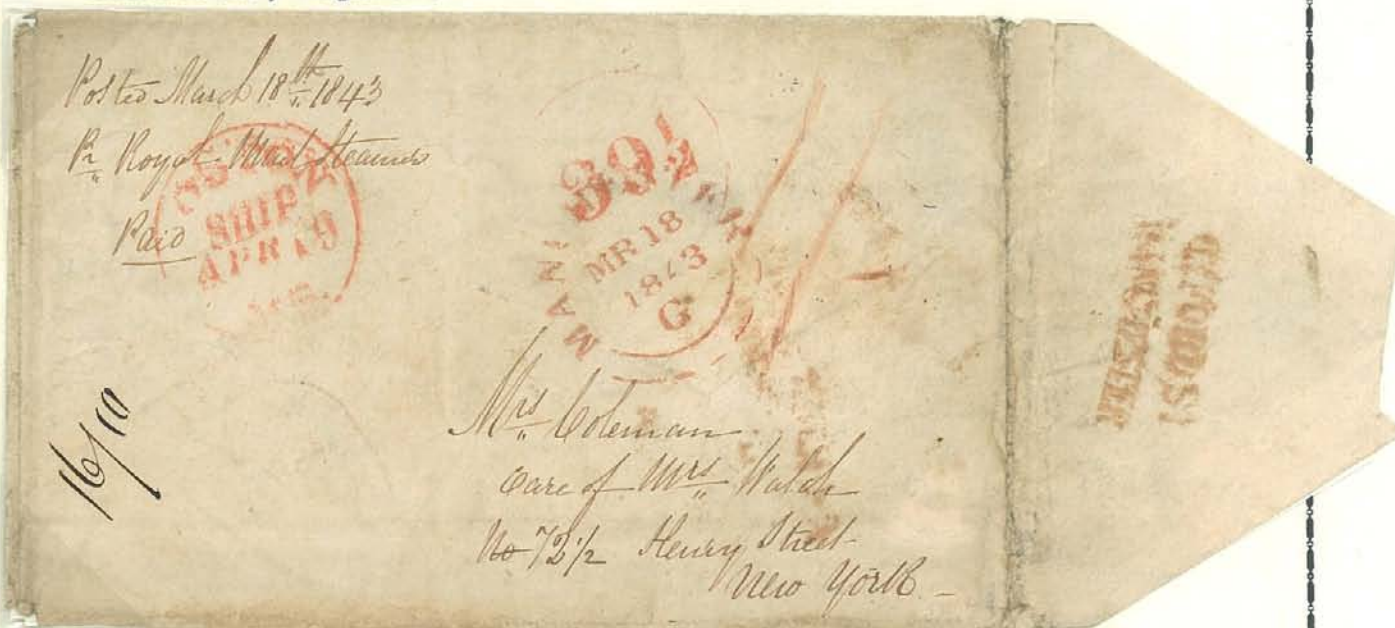 Posted March 18th 1843
Pr Royal Mail Steamer
Paid
BOSTON
SHIP
APR 19
MS.
39½
MANCHESTER
MR 18
1843
G
16/10
Mrs Coleman
Care of Mrs Walsh
No 72½ Henry Street
New York
OXFORD ST
MANCHESTER